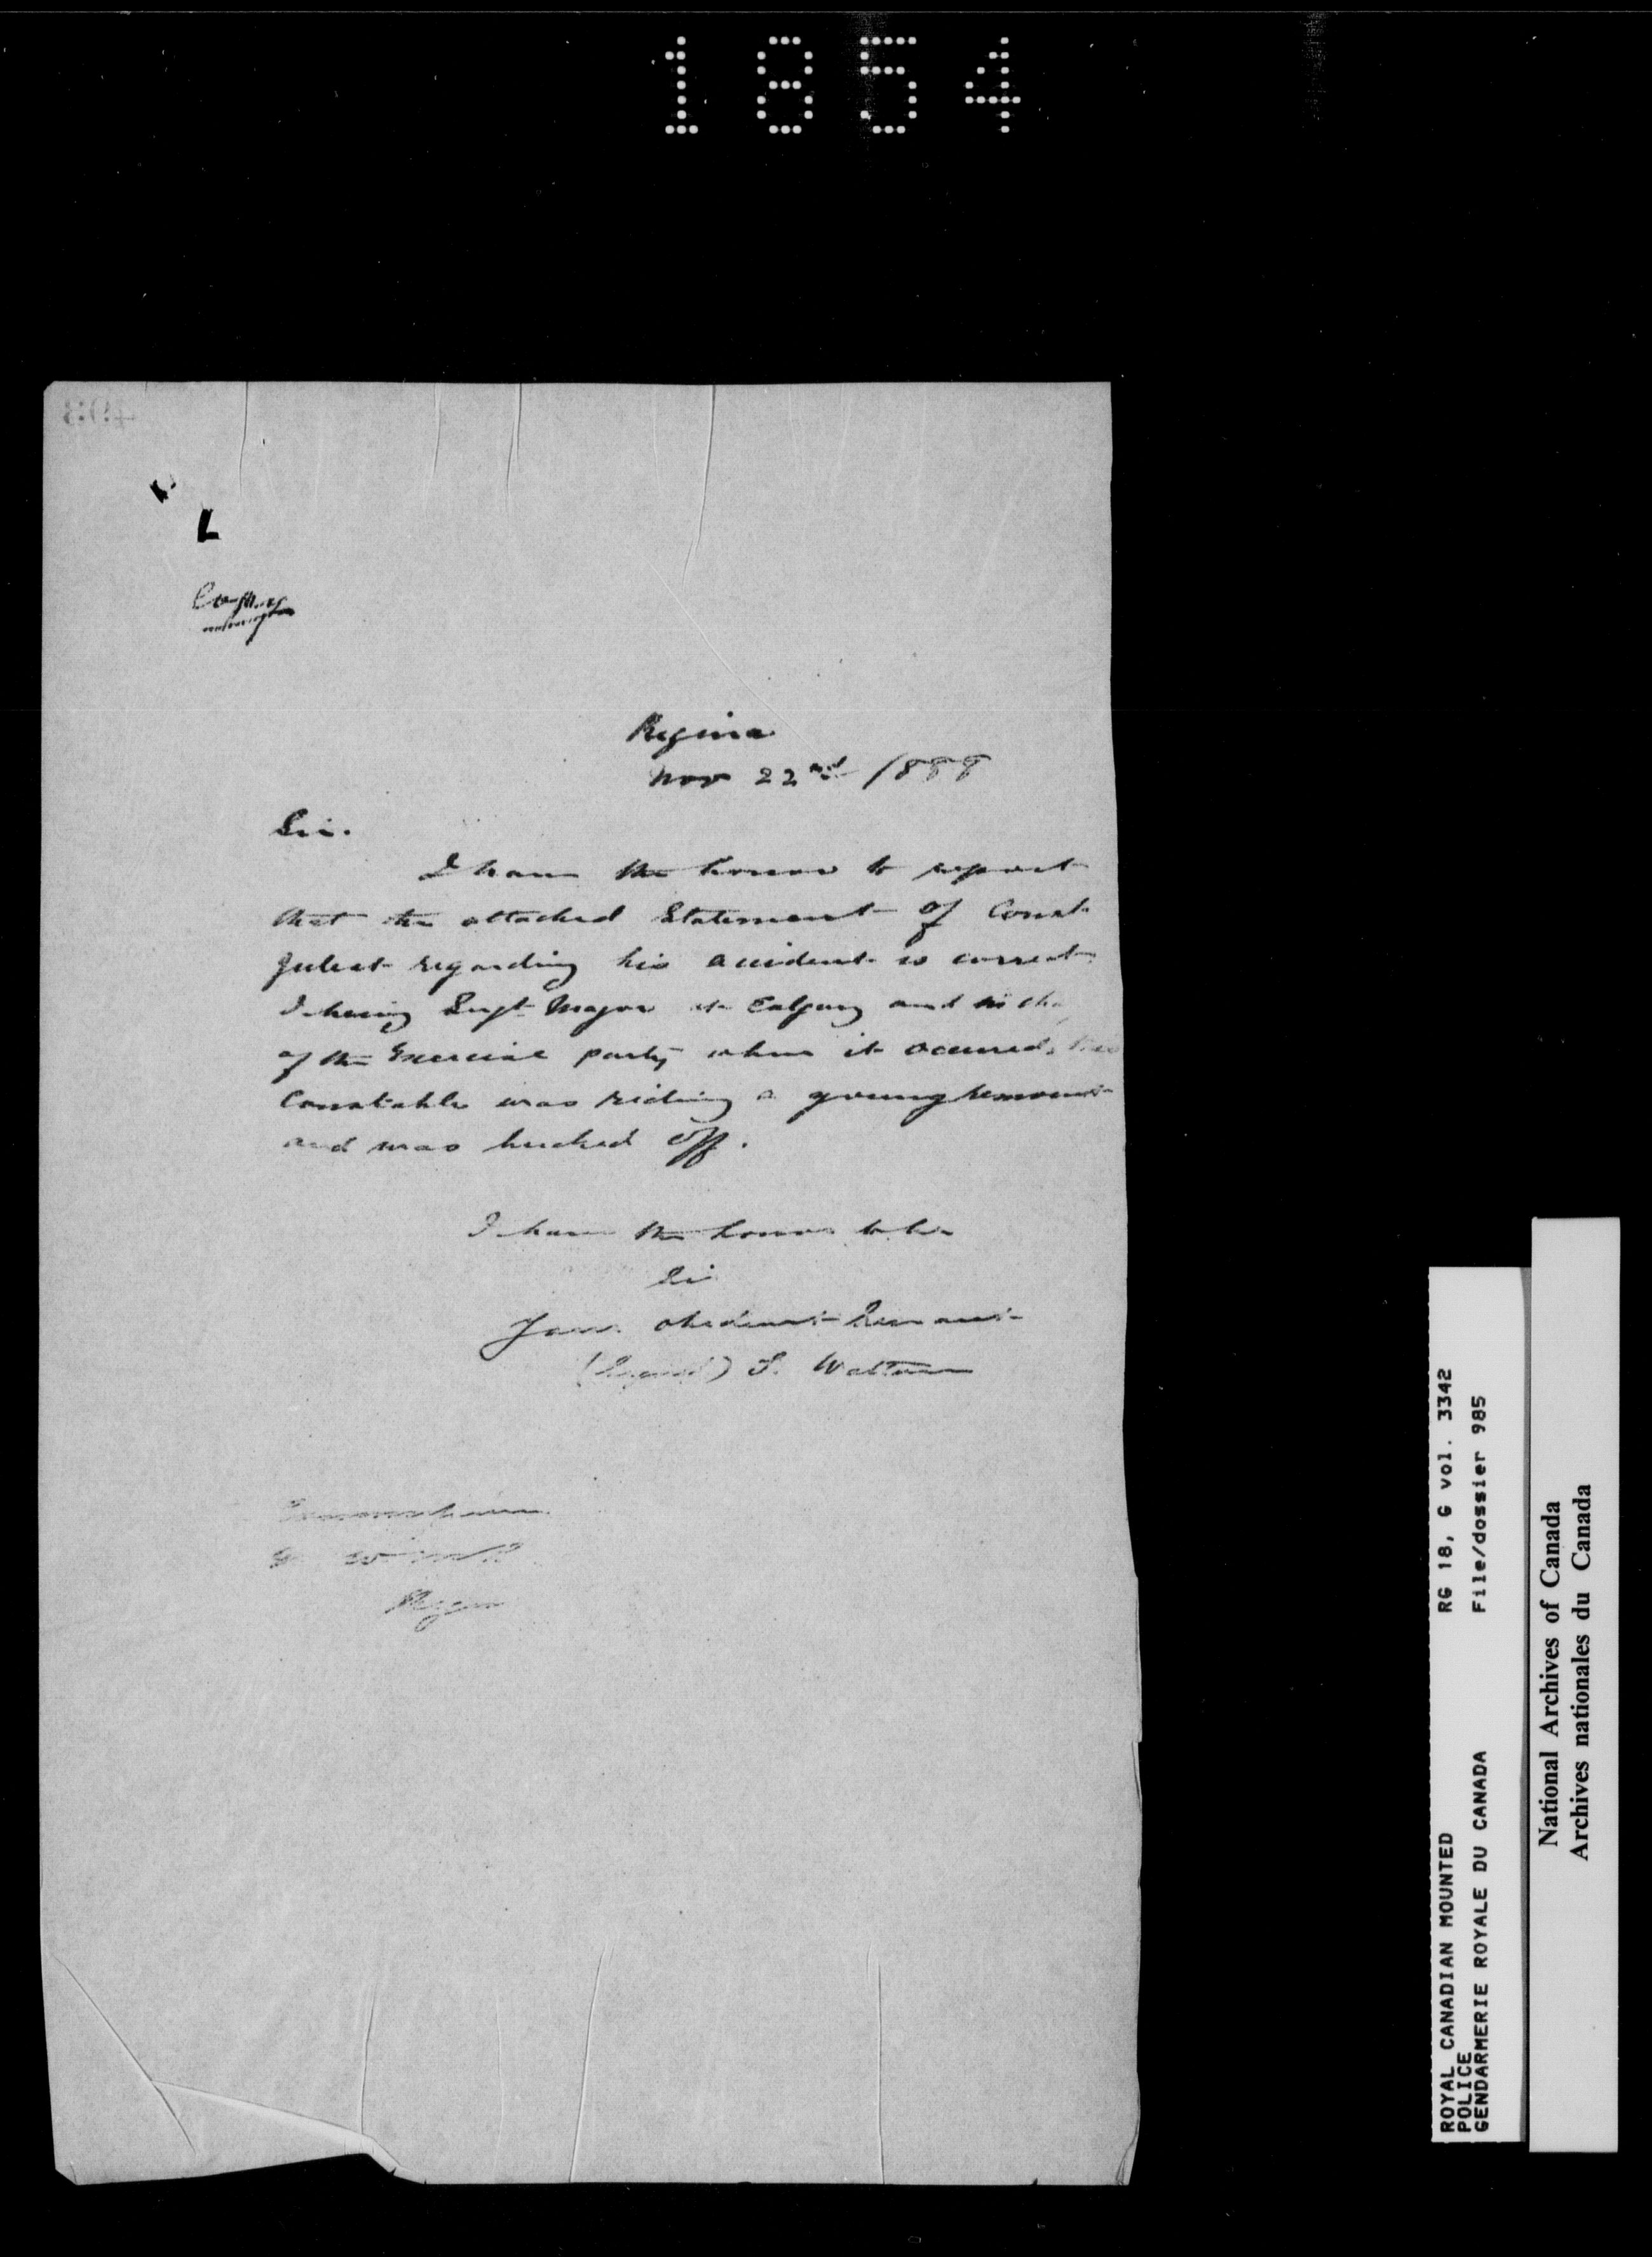 1854
L
Copy
Regina
Nov 22nd 1888
Sir.
I have the honor to report
that the attached Statement of Const.
regarding his accident is correct
I being Sergt Major at Calgary and in
of the Exercise party when it occured, the
Constable was riding a young remount
and was bucked off.
I have the honor to be
Sir
Your obedient Servant
(Signed) Waltons
Commissioner
Regina
ROYAL CANADIAN MOUNTED RG 18, G vol. 3342
POLICE File/dossier 985
GENDARMERIE ROYALE DU CANADA
National Archives of Canada
Archives nationales du Canada